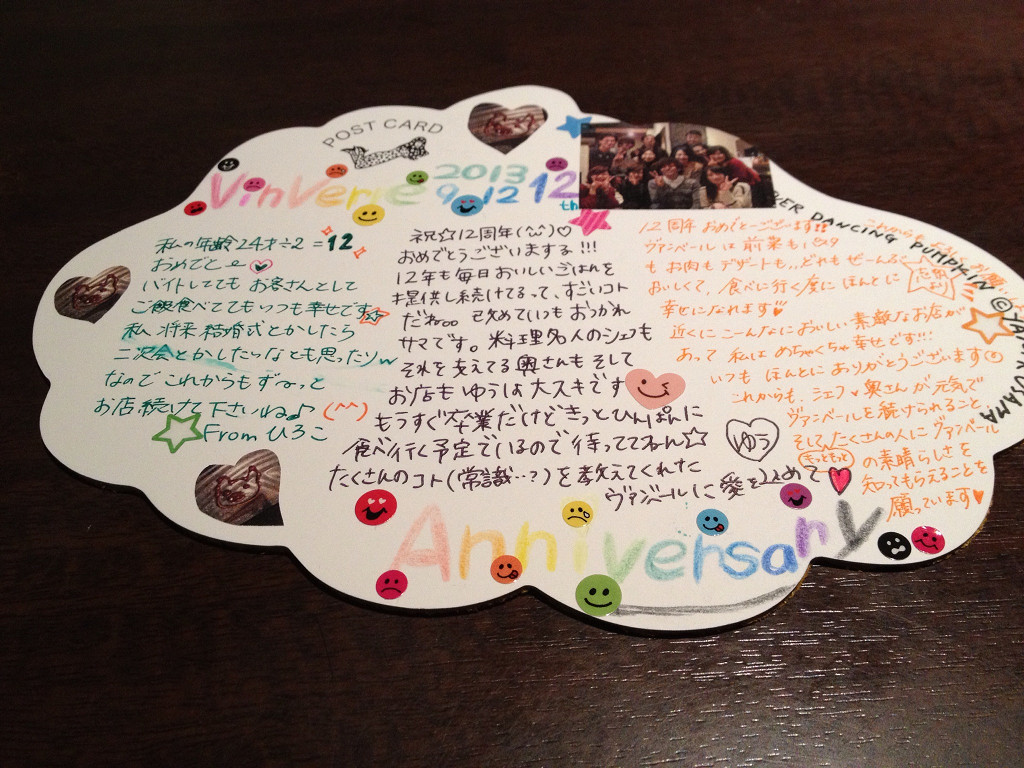 POST CARD
VinVerre
2013
9.12 12th
私の年齢24才÷2=12
おめでとー♡
バイトしてても お客さんとして
ご飯食べててもいつも幸せです☆
私、将来結婚式とかしたら
二次会とかしたいなとも思ったりw
なので これからも ずーっと
お店続けて下さいね♪(^^)
From ひろこ
祝☆12周年(^^)♡
おめでとうございまする!!!
12年も毎日おいしいごはんを
提供し続けてるって、すごいコト
だね。。改めていつもおつかれ
サマです。料理名人のシェフも
それを支えてる奥さんも そして
お店も ゆうは大スキです
もうすぐ卒業だけどきっとひんぱんに
食べ行く予定でいるので待っててねん☆
たくさんのコト(常識…?)を教えてくれた
ヴァンベールに愛を込めて♥
ゆう
12周年 おめでとーございます!!
ヴァンベールは 前菜もパスタ
も お肉も デザートも、、どれも ぜーんぶ
おいしくて、食べに行く度に ほんとに
幸せになれます♥
近くに こーんなにおいしい 素敵なお店が
あって 私は めちゃくちゃ 幸せです!!!
いつも ほんとに ありがとうございます
これからも、シェフ♥奥さんが元気で
ヴァンベールを続けられること
そして、たくさんの人に ヴァンベール
きっともっと の素晴らしさを
知ってもらえることを
願っています♥
DANCING PUMPKIN ©YAYOI KUSAMA
Anniversary